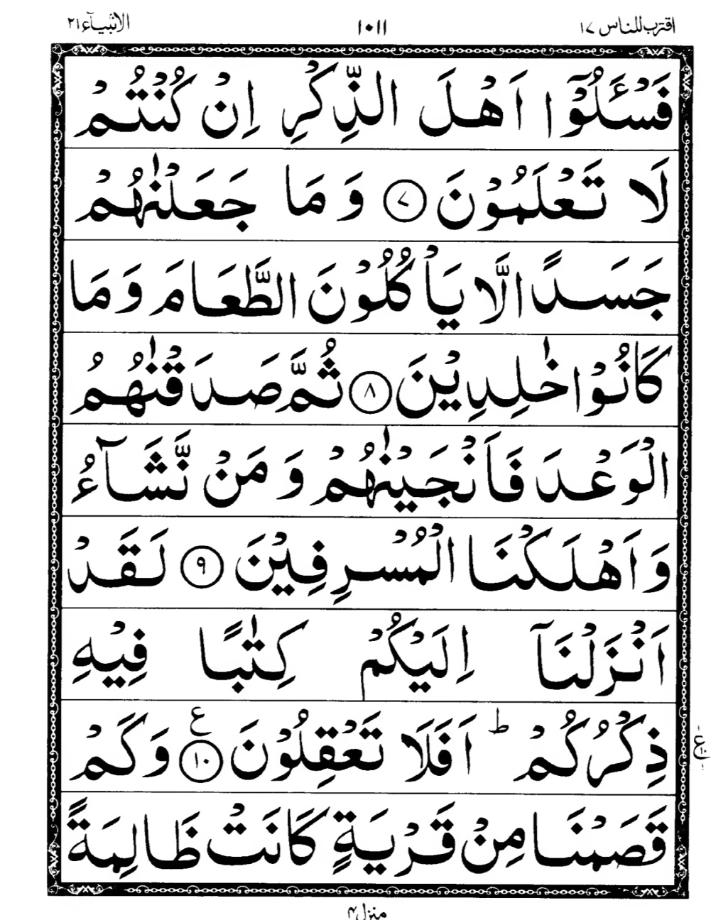 اقترب للناس ١٧ ١٠١١ الانبيآء ٢١
فَسْـَٔلُوْۤا اَهْلَ الذِّكْرِ اِنْ كُنْتُمْ
لَا تَعْلَمُوْنَ ﴿٧﴾ وَ مَا جَعَلْنٰهُمْ
جَسَدًا لَّا يَاْكُلُوْنَ الطَّعَامَ وَ مَا
كَانُوْا خٰلِدِيْنَ ﴿٨﴾ ثُمَّ صَدَقْنٰهُمُ
الْوَعْدَ فَاَنْجَيْنٰهُمْ وَ مَنْ نَّشَآءُ
وَ اَهْلَكْنَا الْمُسْرِفِيْنَ ﴿٩﴾ لَقَدْ
اَنْزَلْنَاۤ اِلَيْكُمْ كِتٰبًا فِيْهِ
ذِكْرُكُمْ ؕ اَفَلَا تَعْقِلُوْنَ ﴿١٠﴾ ع وَ كَمْ
قَصَمْنَا مِنْ قَرْيَةٍ كَانَتْ ظَالِمَةً
منزل ۴